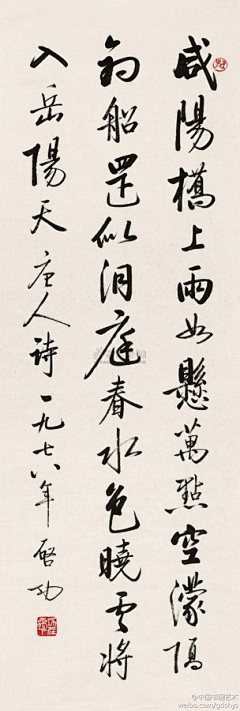 咸陽橋上雨如懸萬點空濛隔
釣船還似洞庭春水色曉云將
入岳陽天唐人詩一九七八年啓功
@中国书画艺术
weibo.com/gdshys